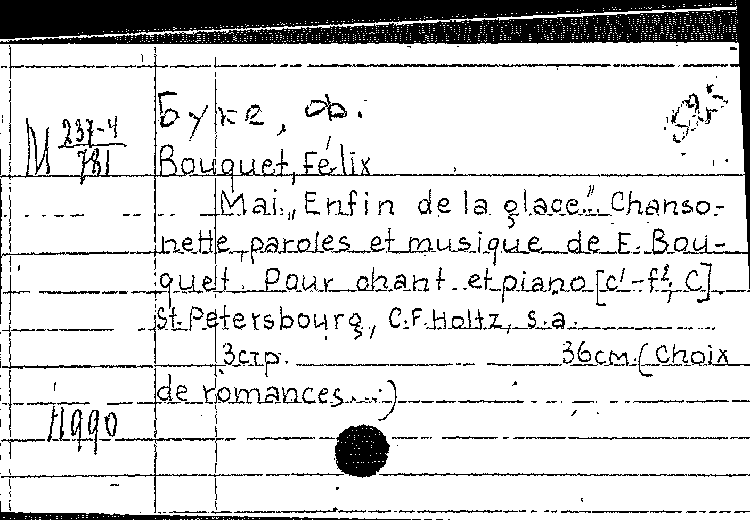 Буке, Ф.
525
М 237-4/781
Bouquet, Félix
Mai. „Enfin de la glace"... Chanso-
nette, paroles et musique de F. Bou-
quet. Pour chant et piano [c¹-f², C].
St.-Petersbourg, C.F. Holtz, s.a.
3 стр. 36 см. (Choix
de romances...)
11990